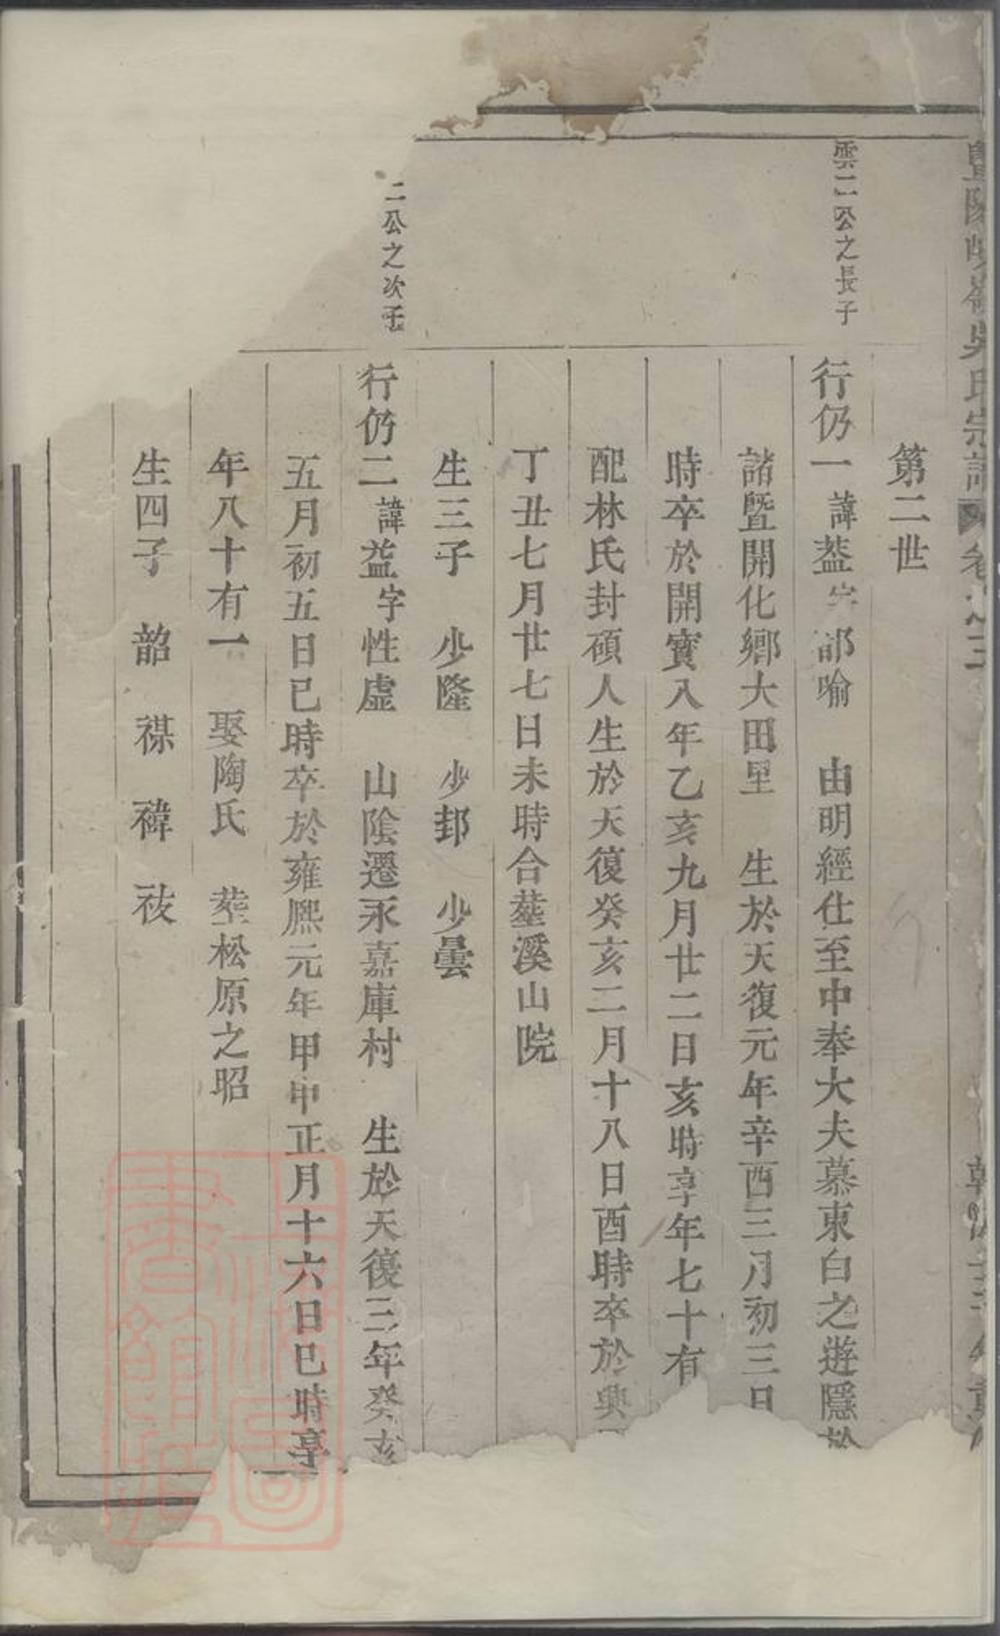 暨陽 吳氏宗譜 卷之三
第二世
雲二公之長子
行仍一 諱葢字 喻 由明經仕至中奉大夫慕東白之遊隱於
諸暨開化鄉大田里 生於天復元年辛酉三月初三日
時卒於開寶八年乙亥九月廿二日亥時享年七十有
配林氏封碩人生於天復癸亥二月十八日酉時卒於興
丁丑七月廿七日未時合塟溪山院
生三子 少隆 少邽 少曇
二公之次子
行仍二 諱益字性虛 山陰遷永嘉庫村 生於天復三年癸亥
五月初五日巳時卒於雍熈元年甲申正月十六日巳時享
年八十有一 娶陶氏 塟松原之昭
生四子 韶 禖 禕 祓
上海圖書館藏